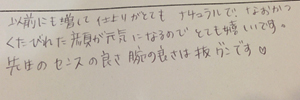 以前にも増して仕上りがとても ナチュラルで、なおかつ
くたびれた顔が元気になるので とても嬉しいです。
先生の センスの良さ 腕の良さは 抜グンです♡